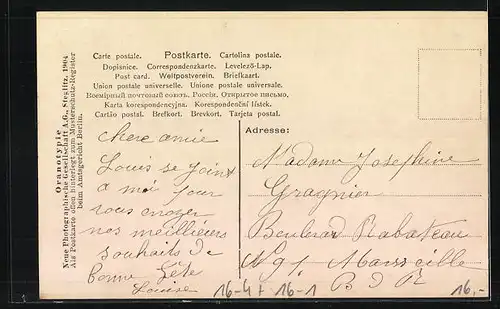 Carte postale. Postkarte. Cartolina postale.
Dopisnice. Correspondenzkarte. Levelező-Lap.
Post card. Weltpostverein. Briefkaart.
Union postale universelle. Unione postale universale.
Всемірный почтовый союзъ. Россія. Открытое письмо.
Karta korespondencyjna. Korespondenční lístek.
Cartão postal. Brefkort. Brevkort. Tarjeta postal.
Oranotypie
Neue Photographische Gesellschaft A.G., Steglitz, 1904
Als Postkarte offen hinterlegt zum Musterschutz-Register
beim Amtsgericht Berlin.
chere amie
Louis se joint
a moi pour
vous envoyer
nos meilleurs
souhaits de
bonne fête
Louise
Adresse:
Madame Josephine
Gragnier
Boulevard Rabateau
Nº 91. Marseille
B d R
16-4+ 16-1
16,-